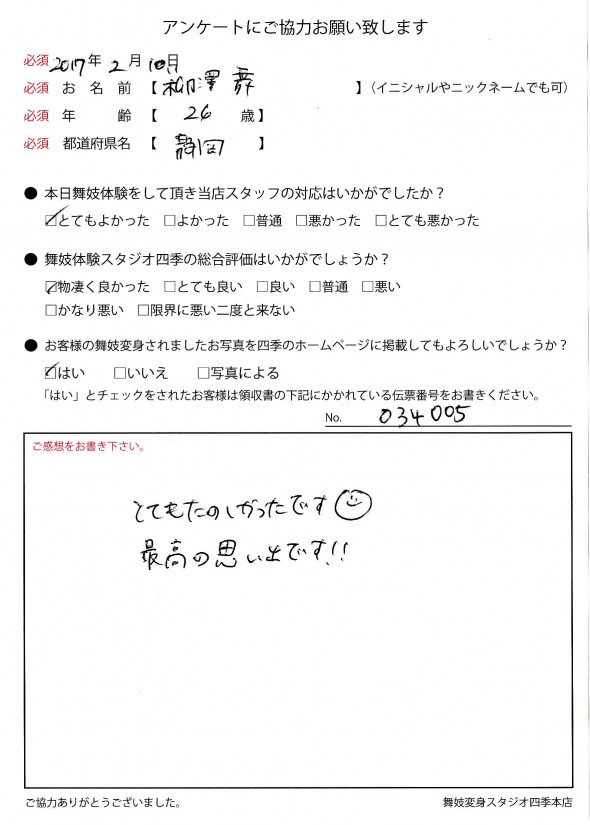 アンケートにご協力お願い致します
必須 2017年 2月 10日
必須 お名前 【 柳澤 舞 】（イニシャルやニックネームでも可）
必須 年齢 【 26 歳】
必須 都道府県名 【 静岡 】
● 本日舞妓体験をして頂き当店スタッフの対応はいかがでしたか？
☑とてもよかった □よかった □普通 □悪かった □とても悪かった
● 舞妓体験スタジオ四季の総合評価はいかがでしょうか？
☑物凄く良かった □とても良い □良い □普通 □悪い
□かなり悪い □限界に悪い二度と来ない
● お客様の舞妓変身されましたお写真を四季のホームページに掲載してもよろしいでしょうか？
☑はい □いいえ □写真による
「はい」とチェックをされたお客様は領収書の下記にかかれている伝票番号をお書きください。
No. 034005
ご感想をお書き下さい。
とてもたのしかったです
最高の思い出です!!
ご協力ありがとうございました。
舞妓変身スタジオ四季本店